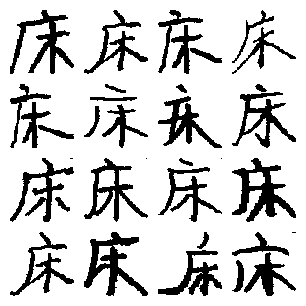 床床床床
床床床床
床床床床
床床床床